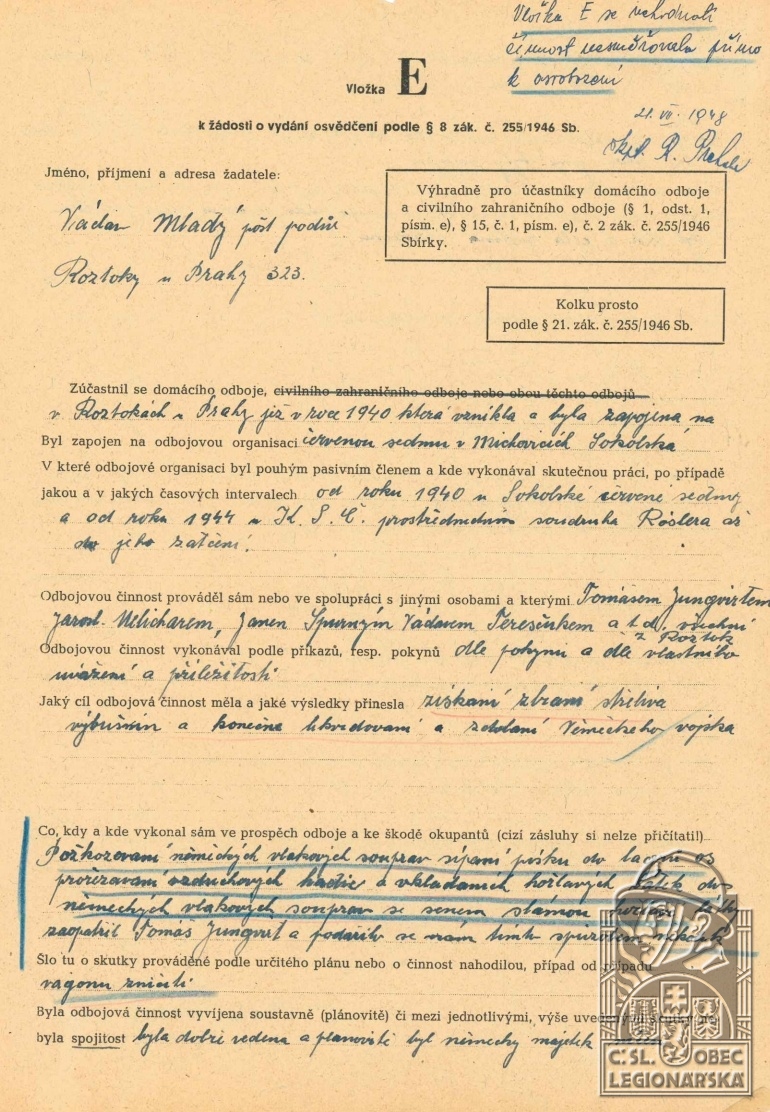 Vložka E se nehodnotí
činnost nesměřovala přímo
k osvobození
21. VII. 1948
škpt. R.
Vložka E
k žádosti o vydání osvědčení podle § 8 zák. č. 255/1946 Sb.
Jméno, příjmení a adresa žadatele:
Václav Mladý
Roztoky u Prahy 323.
Výhradně pro účastníky domácího odboje
a civilního zahraničního odboje (§ 1, odst. 1,
písm. e), § 15, č. 1, písm. e), č. 2 zák. č. 255/1946
Sbírky.
Kolku prosto
podle § 21. zák. č. 255/1946 Sb.
Zúčastnil se domácího odboje, civilního zahraničního odboje nebo obou těchto odbojů
v Roztokách u Prahy již v roce 1940 která vznikla a byla zapojena na
Byl zapojen na odbojovou organisaci červenou sedmu v Michovicích Sokolská
V které odbojové organisaci byl pouhým pasivním členem a kde vykonával skutečnou práci, po případě
jakou a v jakých časových intervalech od roku 1940 u Sokolské červené sedmy
a od roku 1944 u K. S. Č. prostřednictvím soudruha Röslera až
do jeho zatčení.
Odbojovou činnost prováděl sám nebo ve spolupráci s jinými osobami a kterými Tomášem Jungvirtem
Jarosl. Melicharem, Janem Spurným Václavem Tereščukem a t d. všichni
z Roztok
Odbojovou činnost vykonával podle příkazů, resp. pokynů dle pokynu a dle vlastního
uvážení a příležitosti
Jaký cíl odbojová činnost měla a jaké výsledky přinesla získaní zbraní střeliva
výbušnin a konečna likvidovaní a zdolaní Německeho vojska
Co, kdy a kde vykonal sám ve prospěch odboje a ke škodě okupantů (cizí zásluhy si nelze přičítati!)
Poškozovaní německých vlakových souprav sípaní písku do os
prořezavaní vzduchových hadic a vkladaních hořlavých latek do
německých vlakových souprav se senem slámou
zaopatřil Tomáš Jungvirt a podařilo se nám tímto spůsobem
Šlo tu o skutky prováděné podle určitého plánu nebo o činnost nahodilou, případ od případu
vagonu zničiti
Byla odbojová činnost vyvíjena soustavně (plánovitě) či mezi jednotlivými, výše uvedenými skutky
byla spojitost byla dobře vedena a planovitě byl německy majetek
Č. SL. OBEC
LEGIONÁŘSKÁ